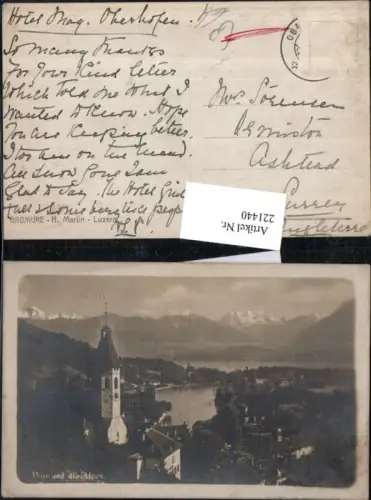 Hotel May. Oberhofen.
So many thanks
for your kind letter
which told me what I
wanted to know. Hope
you are keeping better.
I too am on the mend.
All snow gone I am
glad to say. The Hotel
full & some very
BROMURE - H. Martin - Luzern
Mrs. Sorensen
Ashtead
Surrey
Angleterre
Artikel Nr.
221440
Thun und Kirchturm